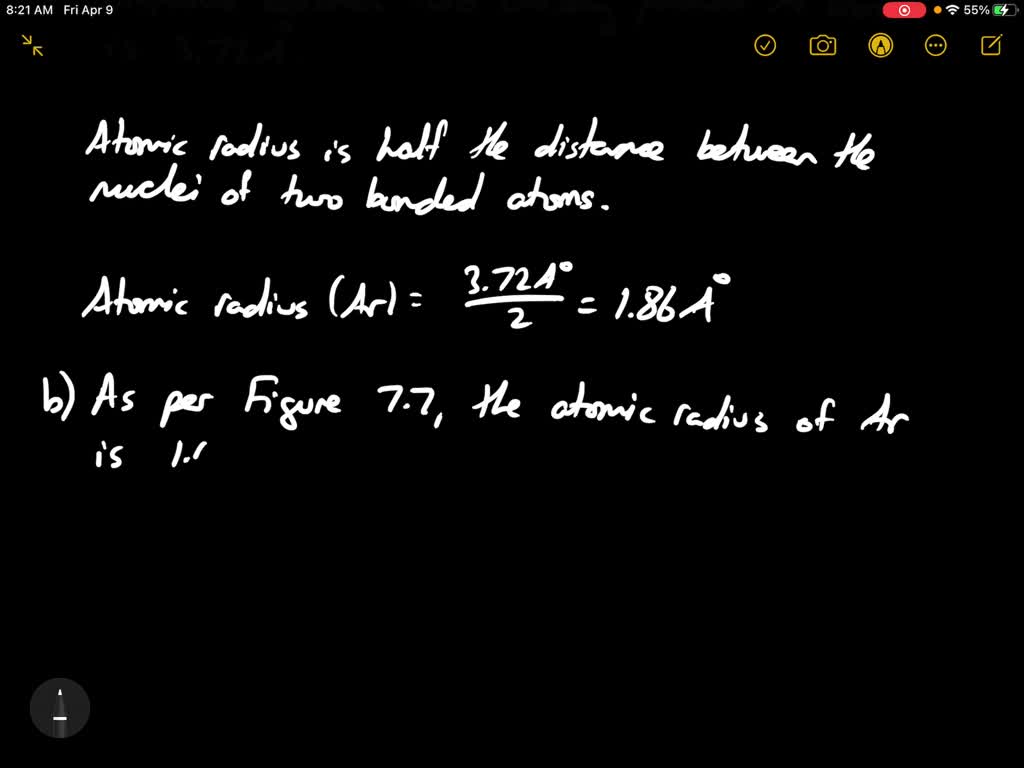 8:21 AM Fri Apr 9
55%
is 3.72A
Atomic radius is half the distance between the
nuclei of two bonded atoms.
Atomic radius (Ar) = 3.72A°/2 = 1.86A°
b) As per Figure 7.7, the atomic radius of Ar
is